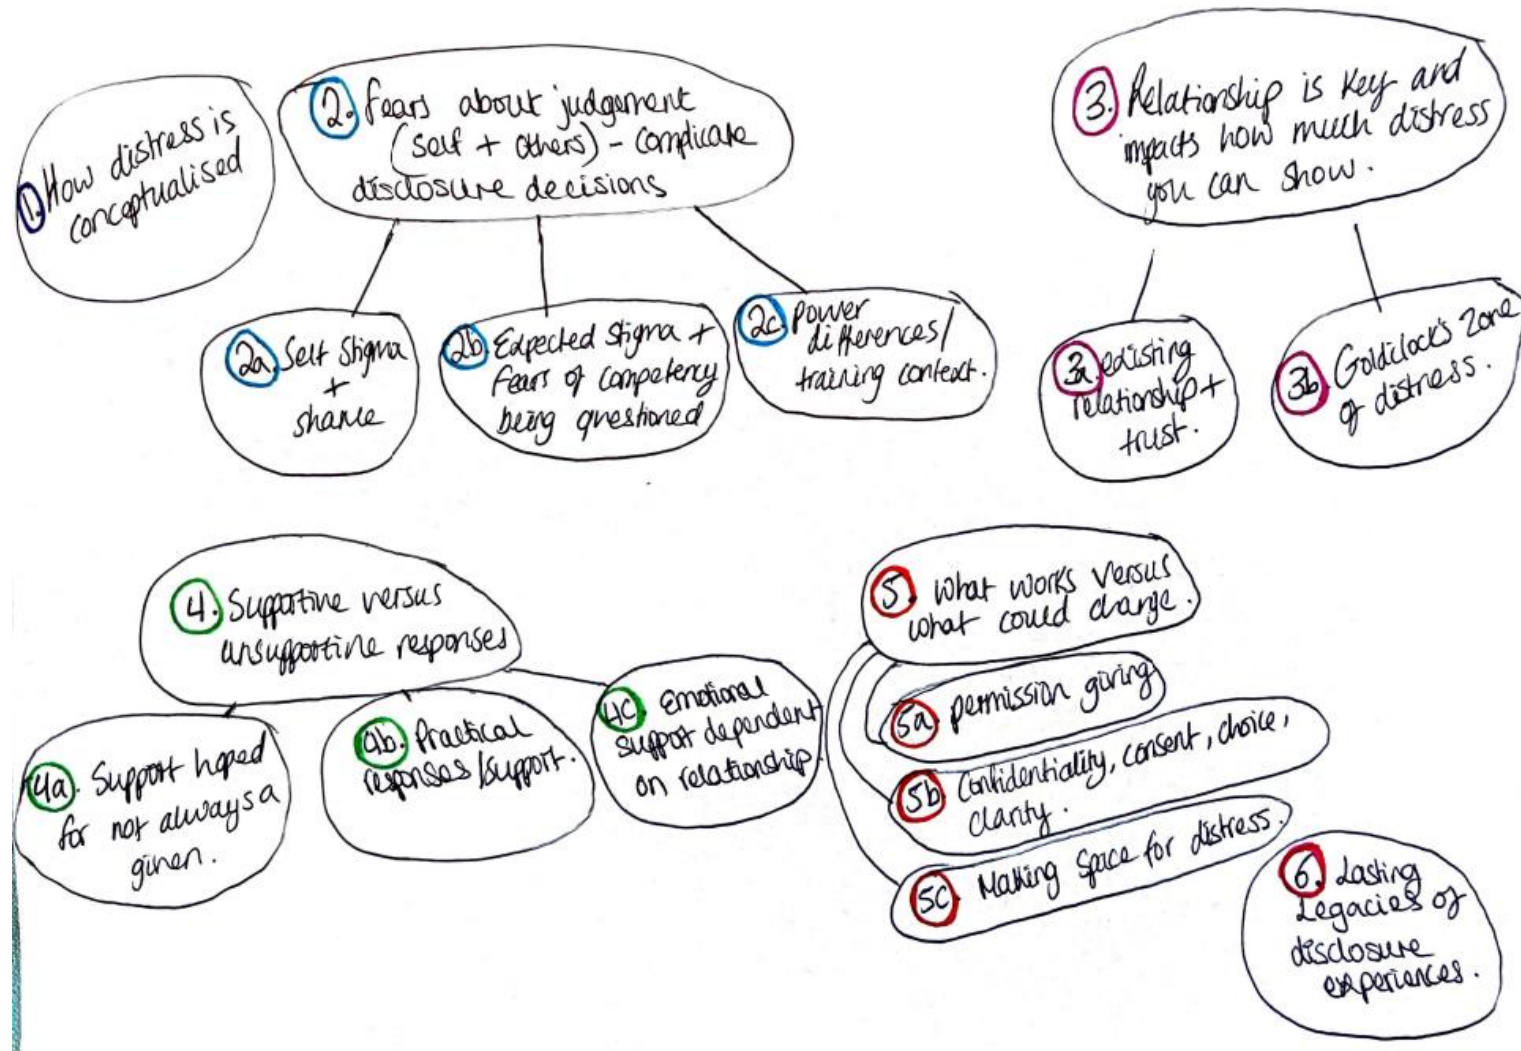 1. How distress is
conceptualised
2. Fears about judgement
(self + others) - complicate
disclosure decisions
2a. Self Stigma
+
shame
2b. Expected Stigma +
fears of competency
being questioned
2c. Power
differences/
training context.
3. Relationship is key and
impacts how much distress
you can show.
3a. existing
relationship +
trust.
3b. Goldilocks zone
of distress.
4. Supportive versus
unsupportive responses
4a. Support hoped
for not always a
given.
4b. Practical
responses/support.
4c. Emotional
support dependent
on relationship.
5. What works versus
what could change.
5a. permission giving
5b. Confidentiality, consent, choice,
clarity.
5c. Making space for distress.
6. Lasting
Legacies of
disclosure
experiences.